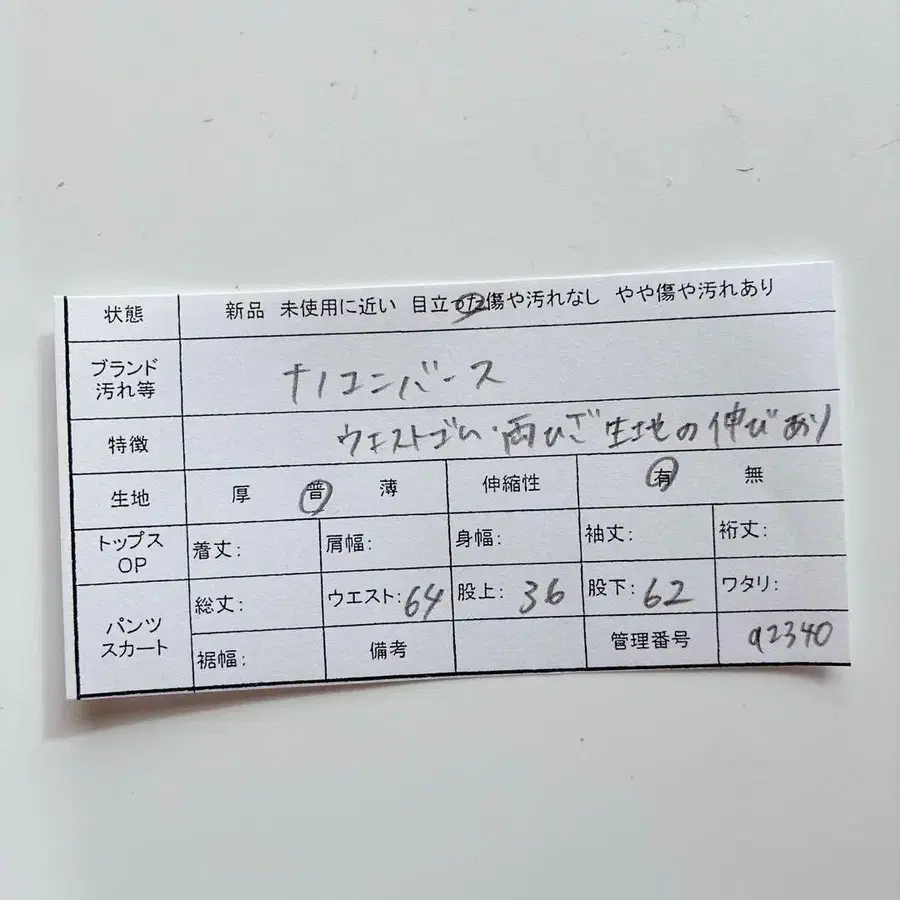 状態 新品 未使用に近い 目立った傷や汚れなし やや傷や汚れあり
ブランド
汚れ等 ナノコンバース
特徴 ウエストゴム・両ひざ生地の伸びあり
生地 厚 普 薄 伸縮性 有 無
トップス
OP 着丈: 肩幅: 身幅: 袖丈: 裄丈:
パンツ
スカート 総丈: ウエスト:64 股上:36 股下:62 ワタリ:
裾幅: 備考 管理番号 a2340